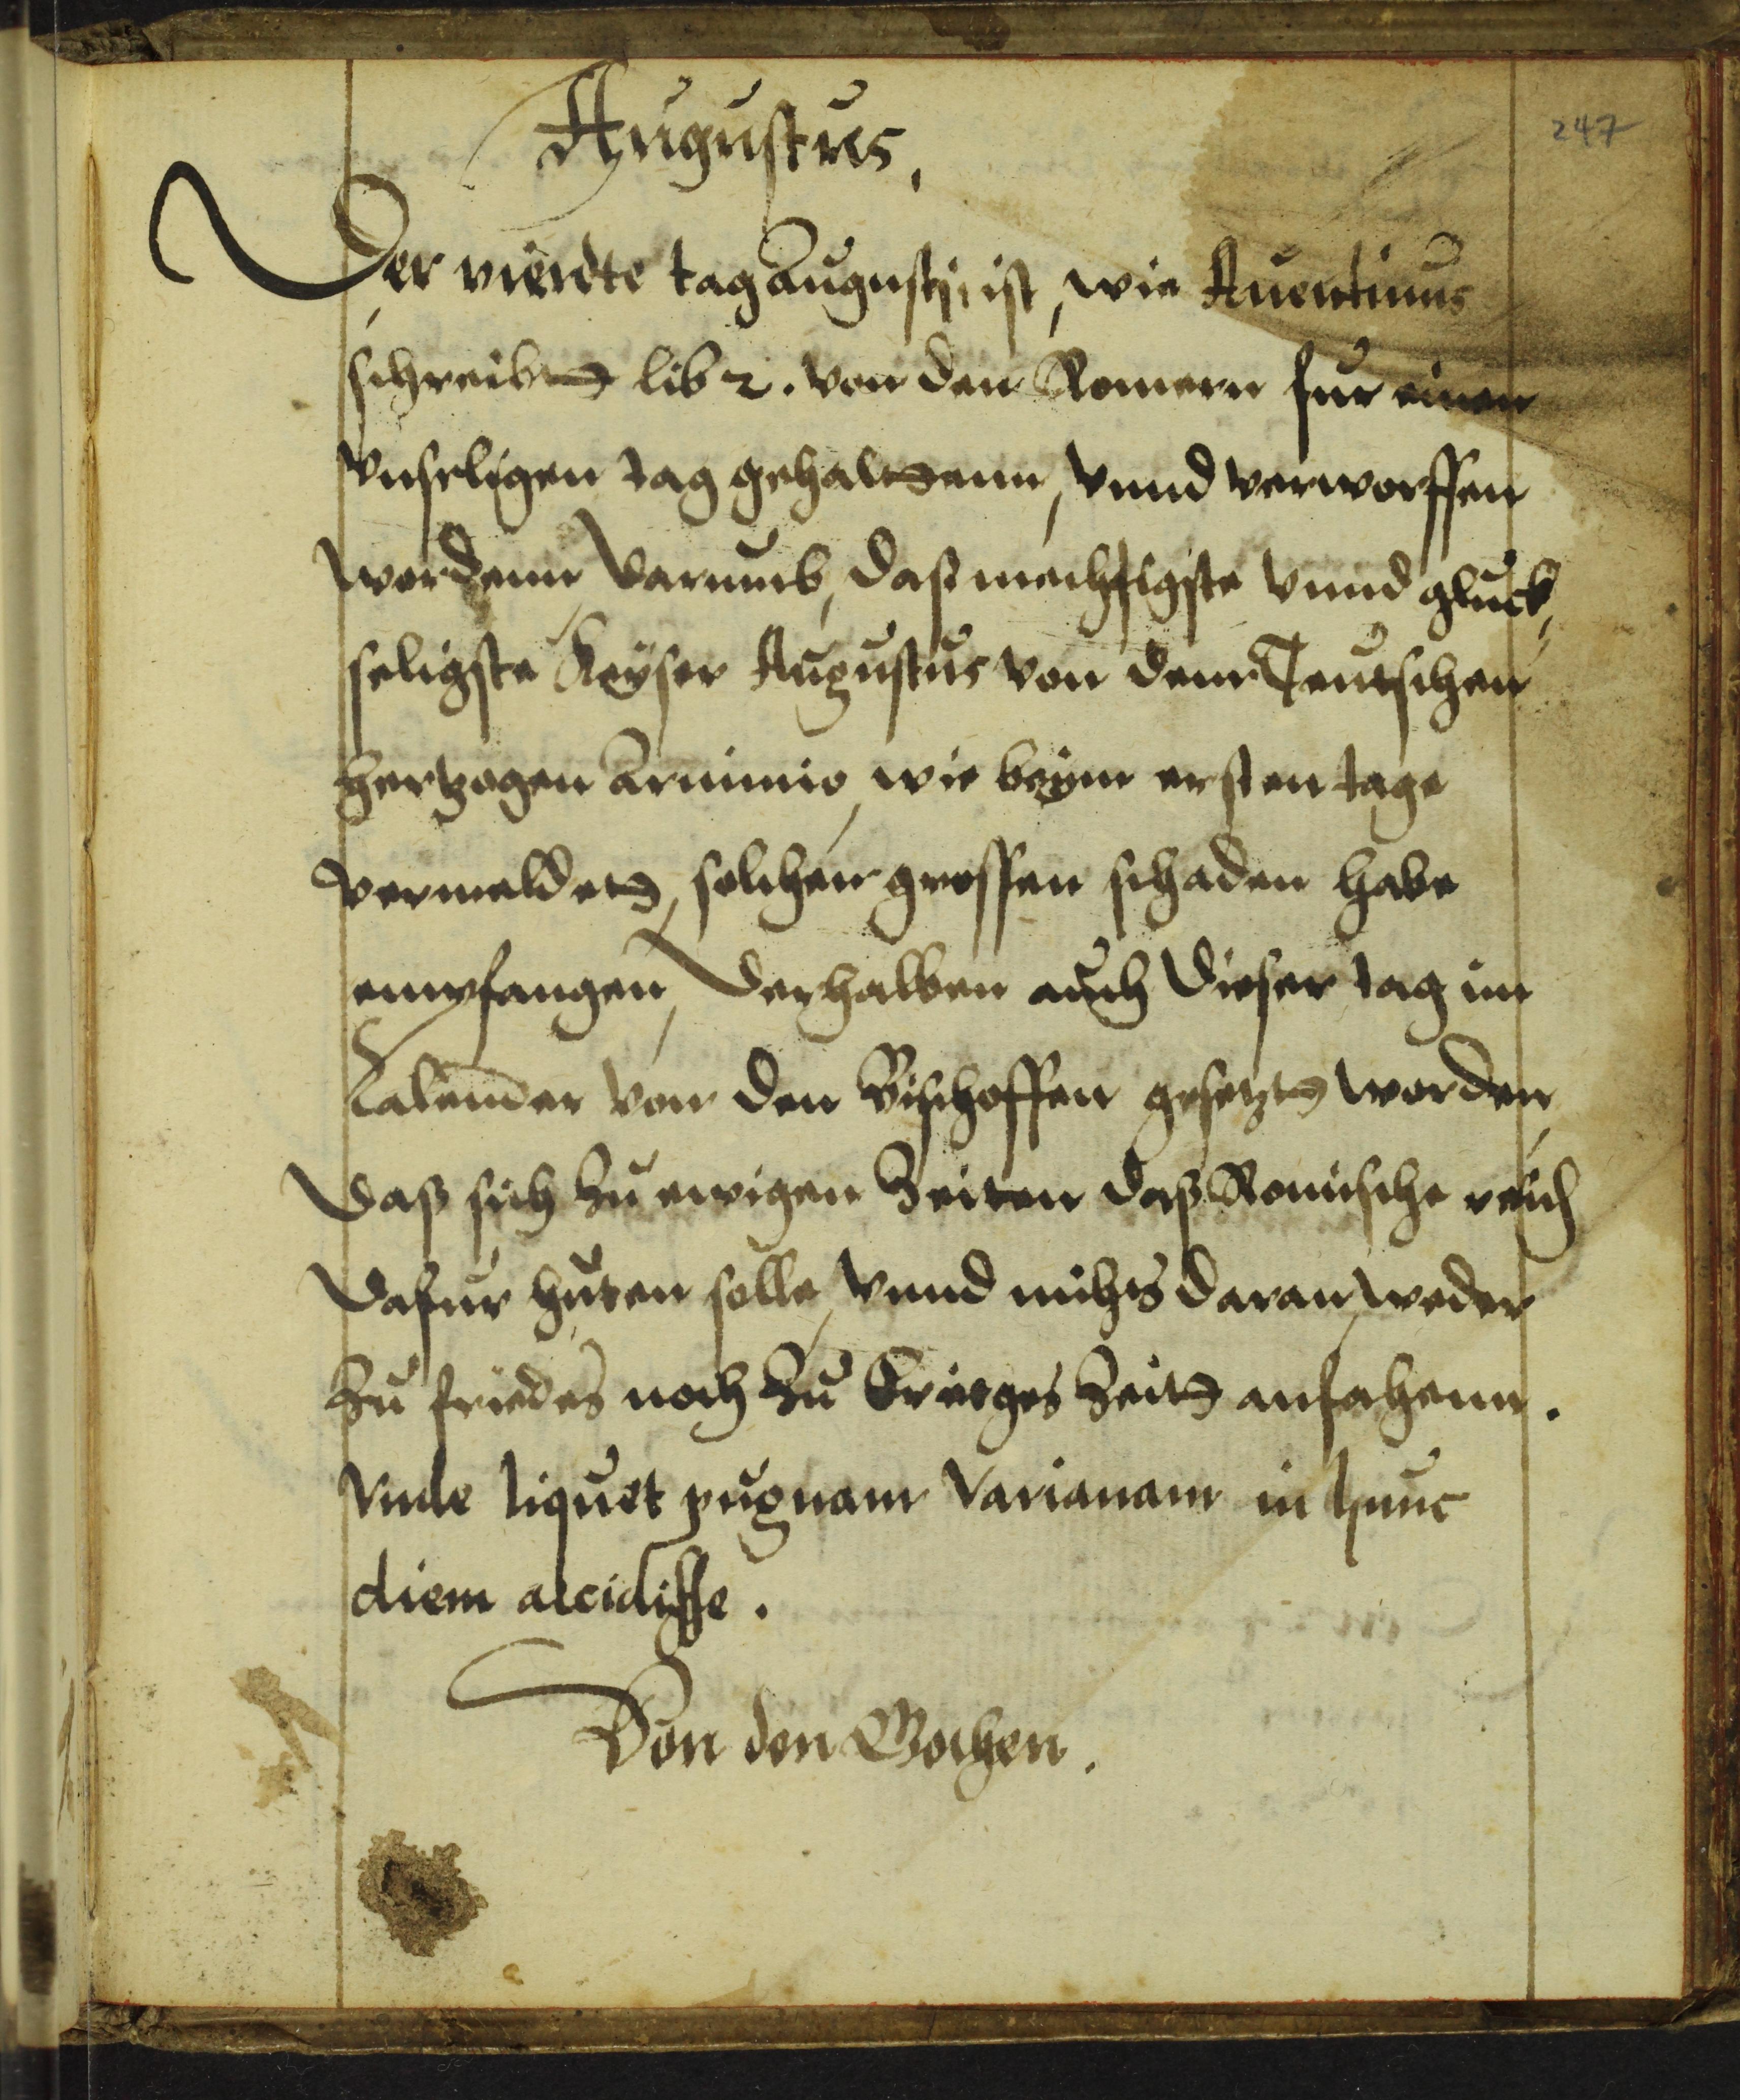 247
Augustus,
Der vierdte tag Augustj, ist, wie Auentinus
schreibett lib 2. von den Romern fur einen
vnseligen tag gehaltenn, vnnd verworffen
wordenn, darumb, daß mechtigste vnnd gluck,
seligste Keÿser Augustus von dem Teutschen
hertzogen Arminio, wie beÿm ersten tage
vermeldett, solchen grossen schaden habe
empfangen, derhalben auch dieser tag im
Calender von den Bischoffen gesetztt worden,
daß sich zu ewigen Zeiten daß Romische reich
dafur huten solle, vnnd nichts daran, weder
zu friedes noch zu krieges Zeitt anfahenn.
Vnde liquet pugnam Varianam in hunc
diem accidisse.
Von den Wochen.